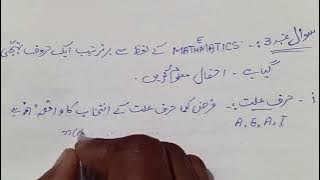 سوال نمبر 3:- MATHEMATICS کے لفظ سے بے ترتیب ایک حروف تہجی
گیا ہے - احتمال معلوم کریں۔
i - حرف علت:- فرض کیا حرف علت کے انتخاب کا واقعہ 'A' ہے
A, E, A, I
n(A